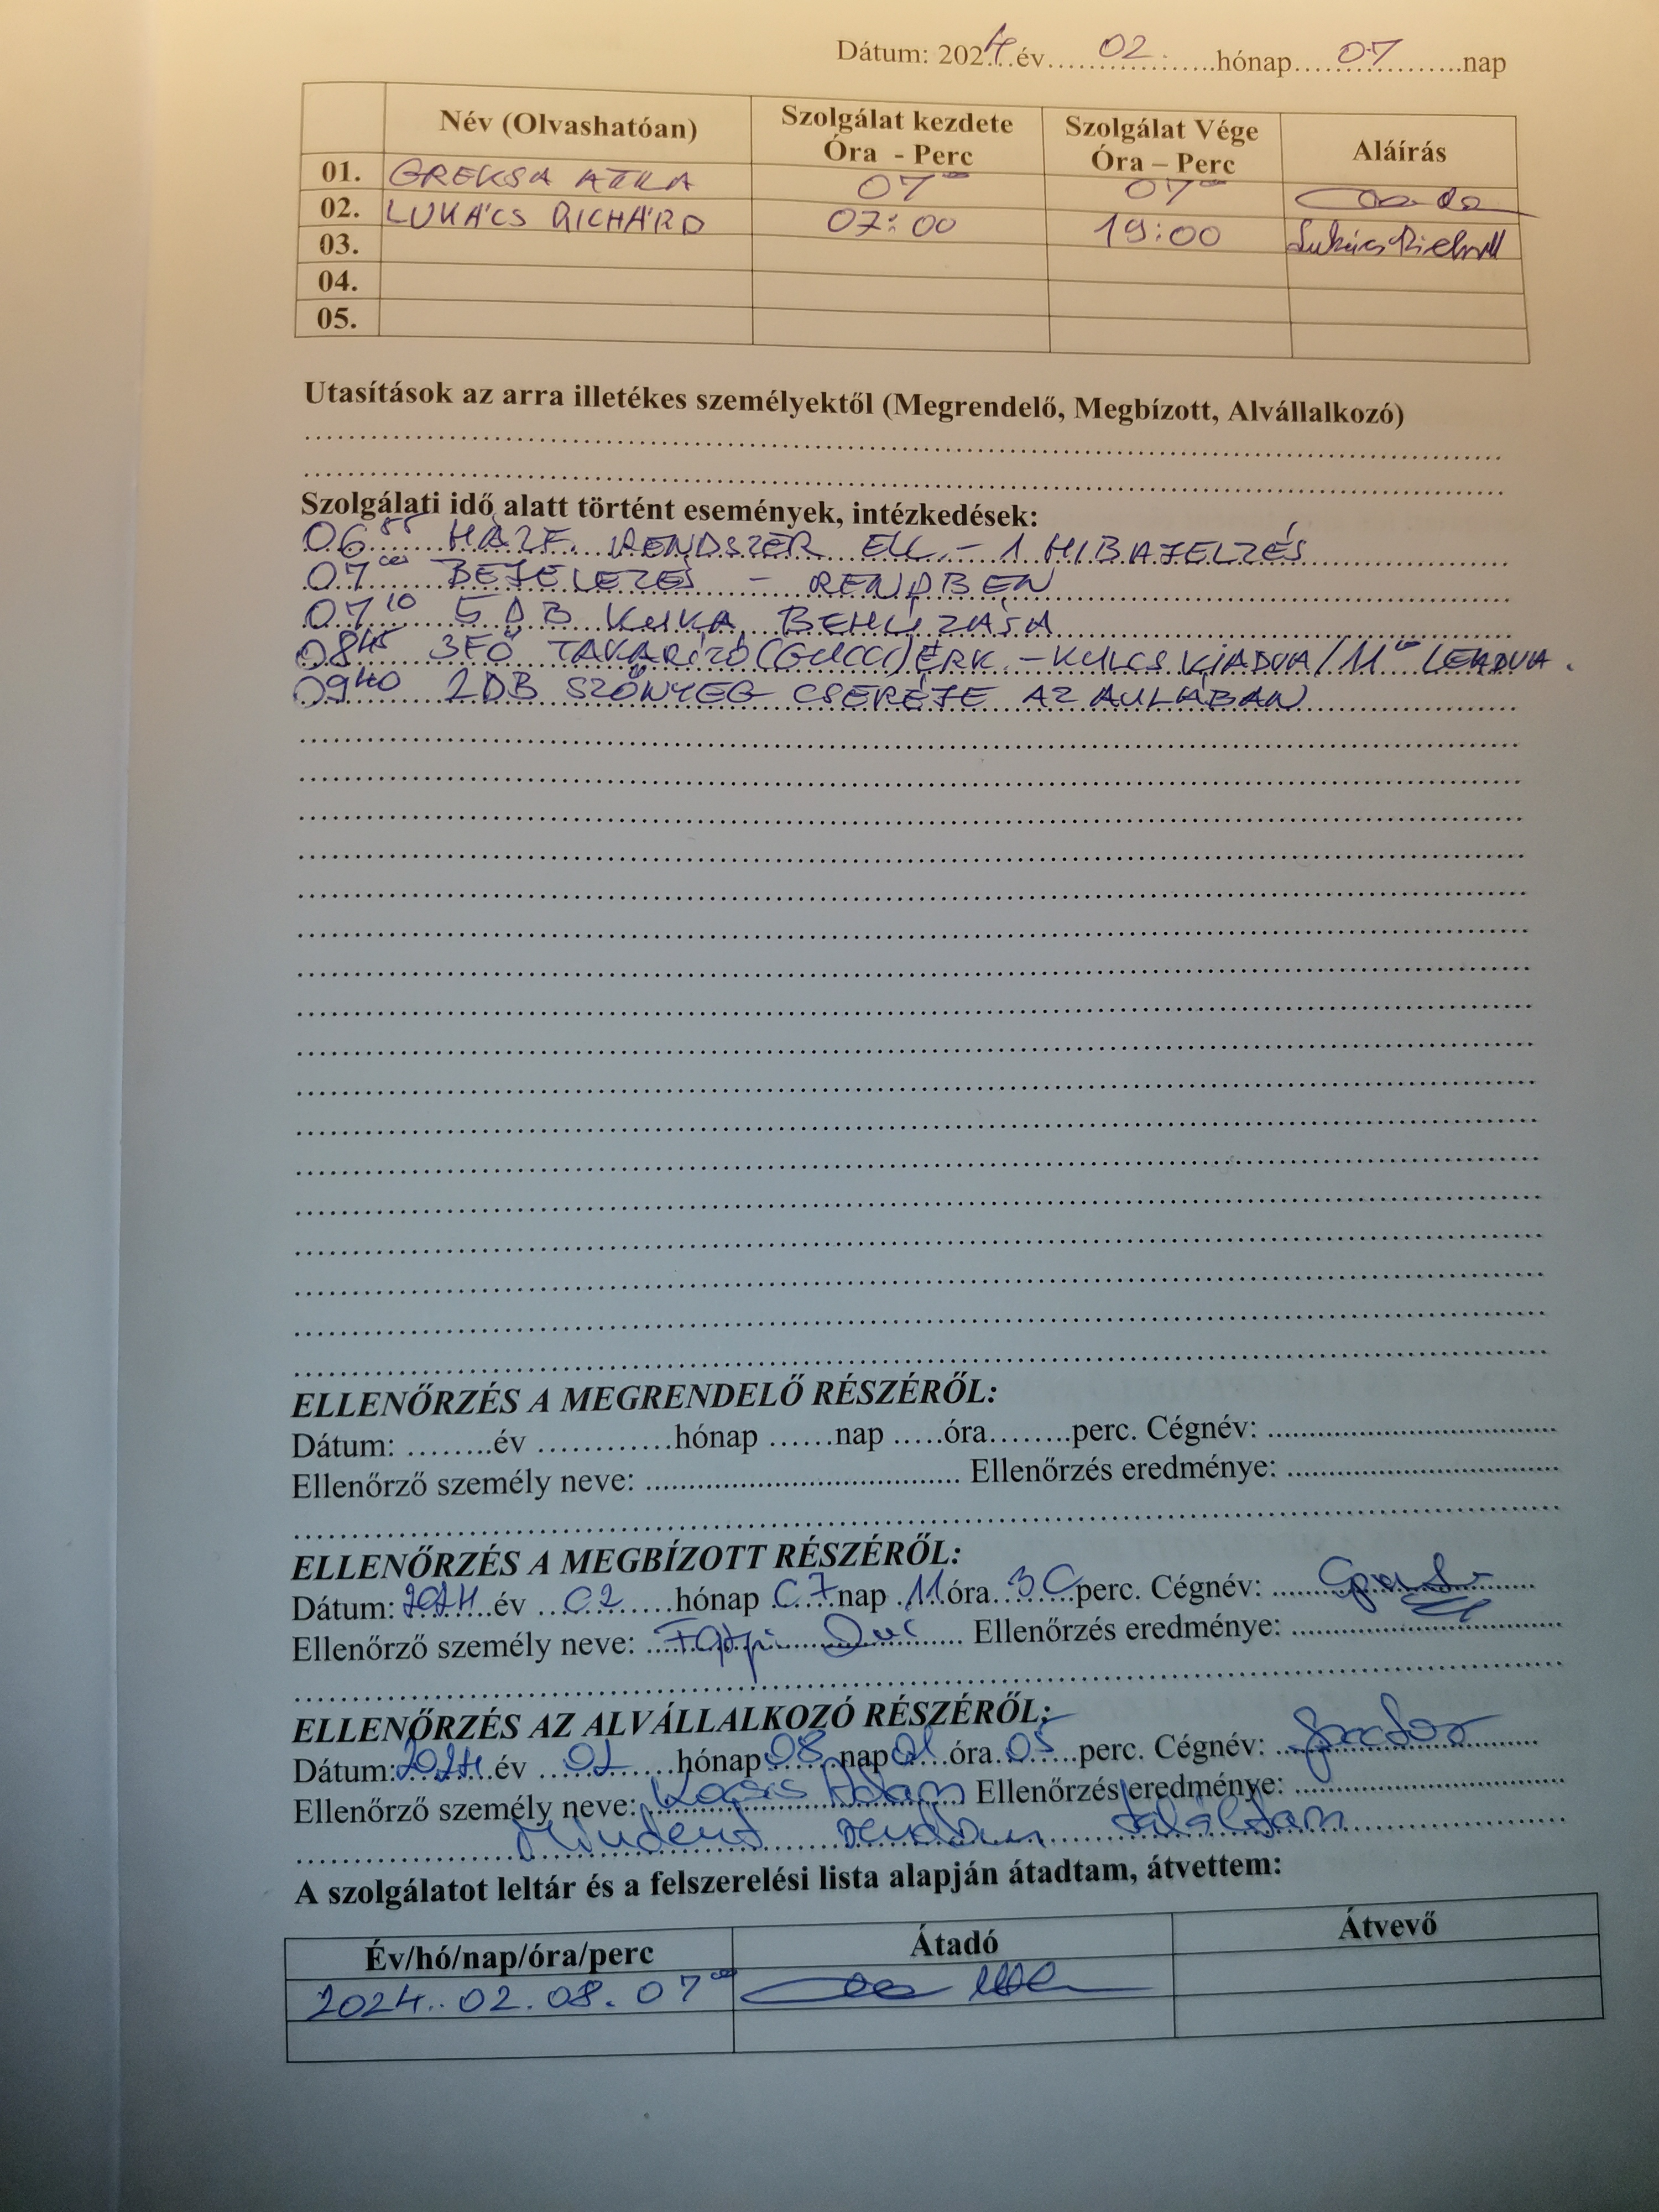 Dátum: 2024 év 02. hónap 07 nap
Név (Olvashatóan) Szolgálat kezdete Óra - Perc Szolgálat Vége Óra – Perc Aláírás
01. GREKSA ATTILA 07⁰⁰ 07⁰⁰
02. LUKÁCS RICHÁRD 07:00 19:00 Lukács Richárd
03.
04.
05.
Utasítások az arra illetékes személyektől (Megrendelő, Megbízott, Alvállalkozó)
Szolgálati idő alatt történt események, intézkedések:
06⁵⁵ RENDSZER ELL. – 1 HIBAJELZÉS
07⁰⁰ BEJELEZÉS – RENDBEN
07¹⁰ 5 DB KUKA BEHÚZÁSA
08⁴⁵ 3FŐ TAKARÍTÓ (GUCCI) ÉRK. – KULCS KIADVA / 11⁰⁰ LEADVA.
09⁴⁰ 2DB SZŐNYEG CSERÉJE AZ AULÁBAN
ELLENŐRZÉS A MEGRENDELŐ RÉSZÉRŐL:
Dátum: ........év ............hónap ......nap .....óra........perc. Cégnév: ........................................
Ellenőrző személy neve: ........................................ Ellenőrzés eredménye: ........................................
ELLENŐRZÉS A MEGBÍZOTT RÉSZÉRŐL:
Dátum: 2024 év 02 hónap 07 nap 11 óra 30 perc. Cégnév:
Ellenőrző személy neve: Ellenőrzés eredménye:
ELLENŐRZÉS AZ ALVÁLLALKOZÓ RÉSZÉRŐL:
Dátum: 2024 év 02 hónap 08 nap 01 óra 05 perc. Cégnév:
Ellenőrző személy neve: Kocsis Ádám Ellenőrzés eredménye:
Mindent rendben találtam
A szolgálatot leltár és a felszerelési lista alapján átadtam, átvettem:
Év/hó/nap/óra/perc Átadó Átvevő
2024. 02. 08. 07⁰⁰